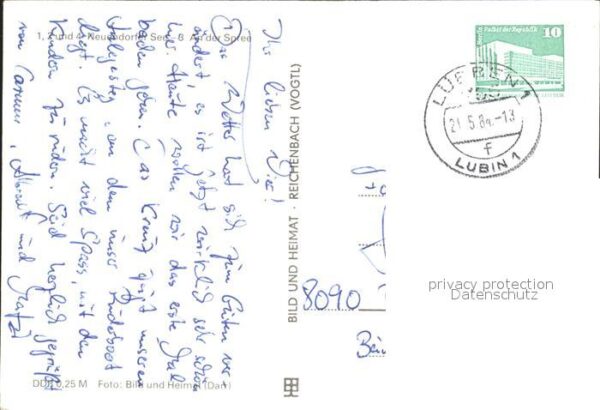 1, 2 und 4 Neuendorfer See 3 An der Spree
Ihr lieben Vier!
Das Wetter hat sich zum Guten ver-
ändert, es ist jetzt wirklich sehr schön
hier. Heute wollen wir das erste Mal
baden gehen. Das Kreuz zeigt unseren
Anlegesteg, an dem unser Ruderboot
liegt. Es macht viel Spass, mit den
Kindern zu rudern. Seid herzlich gegrüßt
von Carmen, und
DDR 0,25 M Foto: Bild und Heimat (Darr)
BILD UND HEIMAT · REICHENBACH (VOGTL)
Berlin, Palast der Republik
10
DDR
LÜBBEN 1
21.5.84-13
f
LUBIN 1
8090
privacy protection
Datenschutz